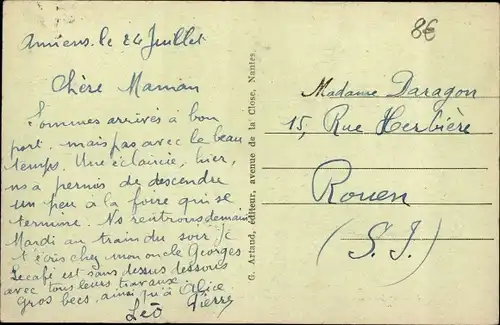 Amiens. le 24 Juillet
Chère Maman
Sommes arrivés à bon
port, mais pas avec le beau
temps. Une éclaircie, hier,
ns a permis de descendre
un peu à la foire qui se
termine. Ns rentrons demain
Mardi au train du soir. Je
t'écris chez mon oncle Georges
Le café est sans dessus dessous
avec tous leurs travaux.
Gros becs, ainsi qu'à Alice
Léo Pierre
G. Artaud, éditeur, avenue de la Close, Nantes
8€
Madame Daragon
15, Rue Herbière
Rouen
(S. I.)